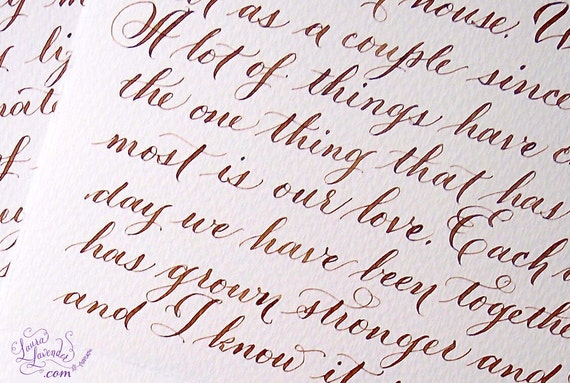 as a couple since
A lot of things have
the one thing that has
most is our love. Each
day we have been together
has grown stronger and
and I know it
of
Laura
Lavender
.com